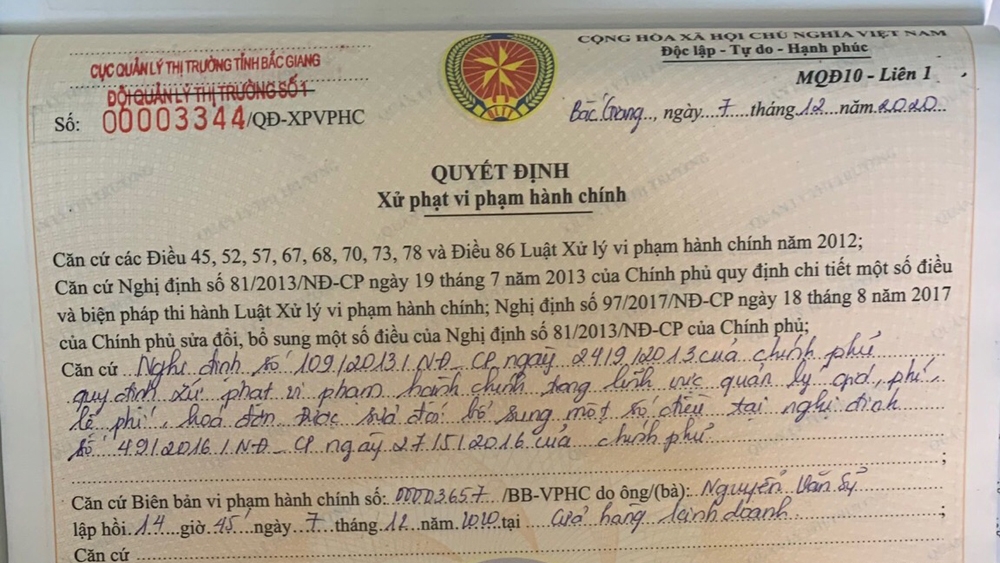 CỤC QUẢN LÝ THỊ TRƯỜNG TỈNH BẮC GIANG
ĐỘI QUẢN LÝ THỊ TRƯỜNG SỐ 1
Số: 00003344/QĐ-XPVPHC
CỘNG HÒA XÃ HỘI CHỦ NGHĨA VIỆT NAM
Độc lập - Tự do - Hạnh phúc
MQĐ10 - Liên 1
Bắc Giang.., ngày..7....tháng.12...năm.2020....
QUYẾT ĐỊNH
Xử phạt vi phạm hành chính
Căn cứ các Điều 45, 52, 57, 67, 68, 70, 73, 78 và Điều 86 Luật Xử lý vi phạm hành chính năm 2012;
Căn cứ Nghị định số 81/2013/NĐ-CP ngày 19 tháng 7 năm 2013 của Chính phủ quy định chi tiết một số điều
và biện pháp thi hành Luật Xử lý vi phạm hành chính; Nghị định số 97/2017/NĐ-CP ngày 18 tháng 8 năm 2017
của Chính phủ sửa đổi, bổ sung một số điều của Nghị định số 81/2013/NĐ-CP của Chính phủ;
Căn cứ Nghị định số 109/2013/NĐ-CP ngày 24/9/2013 của chính phủ
quy định xử phạt vi phạm hành chính trong lĩnh vực quản lý giá, phí,
lệ phí, hoá đơn được sửa đổi bổ sung một số điều tại nghị định
số 49/2016/NĐ-CP ngày 27/5/2016 của chính phủ
;
Căn cứ Biên bản vi phạm hành chính số: 00003657 /BB-VPHC do ông/(bà): Nguyễn Văn Sỹ
lập hồi .14. giờ .45. ngày .7. tháng .12. năm .2020 tại cửa hàng kinh doanh ;
Căn cứ